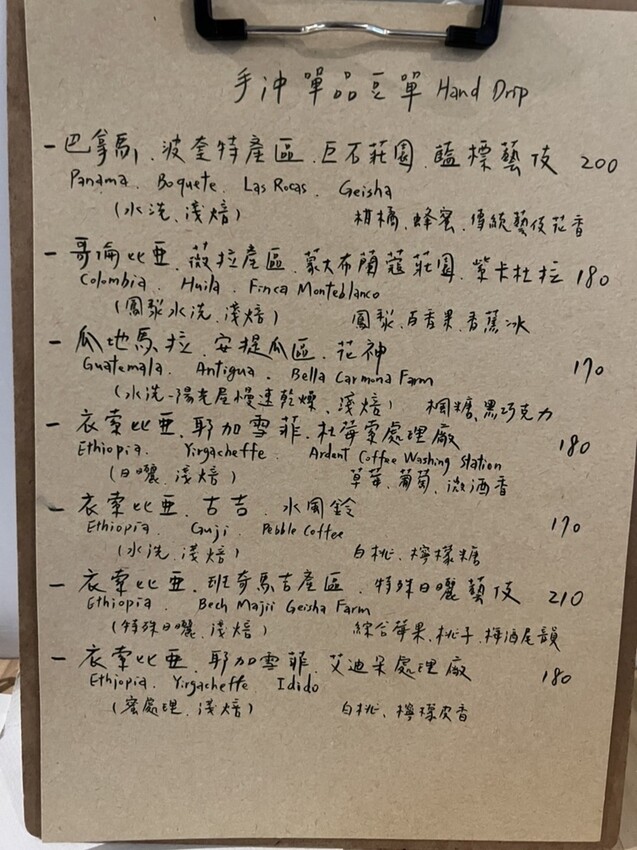 手沖單品豆單 Hand Drip
- 巴拿馬、波奎特產區、巨石莊園、藍標藝伎 200
Panama. Boquete. Las Rocas. Geisha
(水洗、淺焙) 柑橘、蜂蜜、傳統藝伎花香
- 哥倫比亞、薇拉產區、蒙大布蘭蔻莊園、紫卡杜拉 180
Colombia. Huila. Finca Monteblanco
(鳳梨水洗、淺焙) 鳳梨、百香果、香蕉冰
- 瓜地馬拉、安提瓜區、花神 170
Guatemala. Antigua. Bella Carmona Farm
(水洗-陽老屋慢速乾燥、淺焙) 楓糖、黑巧克力
- 衣索比亞、耶加雪菲、杜莓索處理廠 180
Ethiopia. Yirgacheffe. Ardent Coffee Washing Station
(日曬、淺焙) 草莓、葡萄、微酒香
- 衣索比亞、古吉、水風鈴 170
Ethiopia. Guji. Pebble Coffee
(水洗、淺焙) 白桃、檸檬糖
- 衣索比亞、班奇馬吉產區、特殊日曬藝伎 210
Ethiopia. Bech Majii Geisha Farm
(特殊日曬、淺焙) 綜合莓果、桃子、梅酒尾韻
- 衣索比亞、耶加雪菲、艾迪朵處理廠 180
Ethiopia. Yirgacheffe Idido
(蜜處理、淺焙) 白桃、檸檬皮香